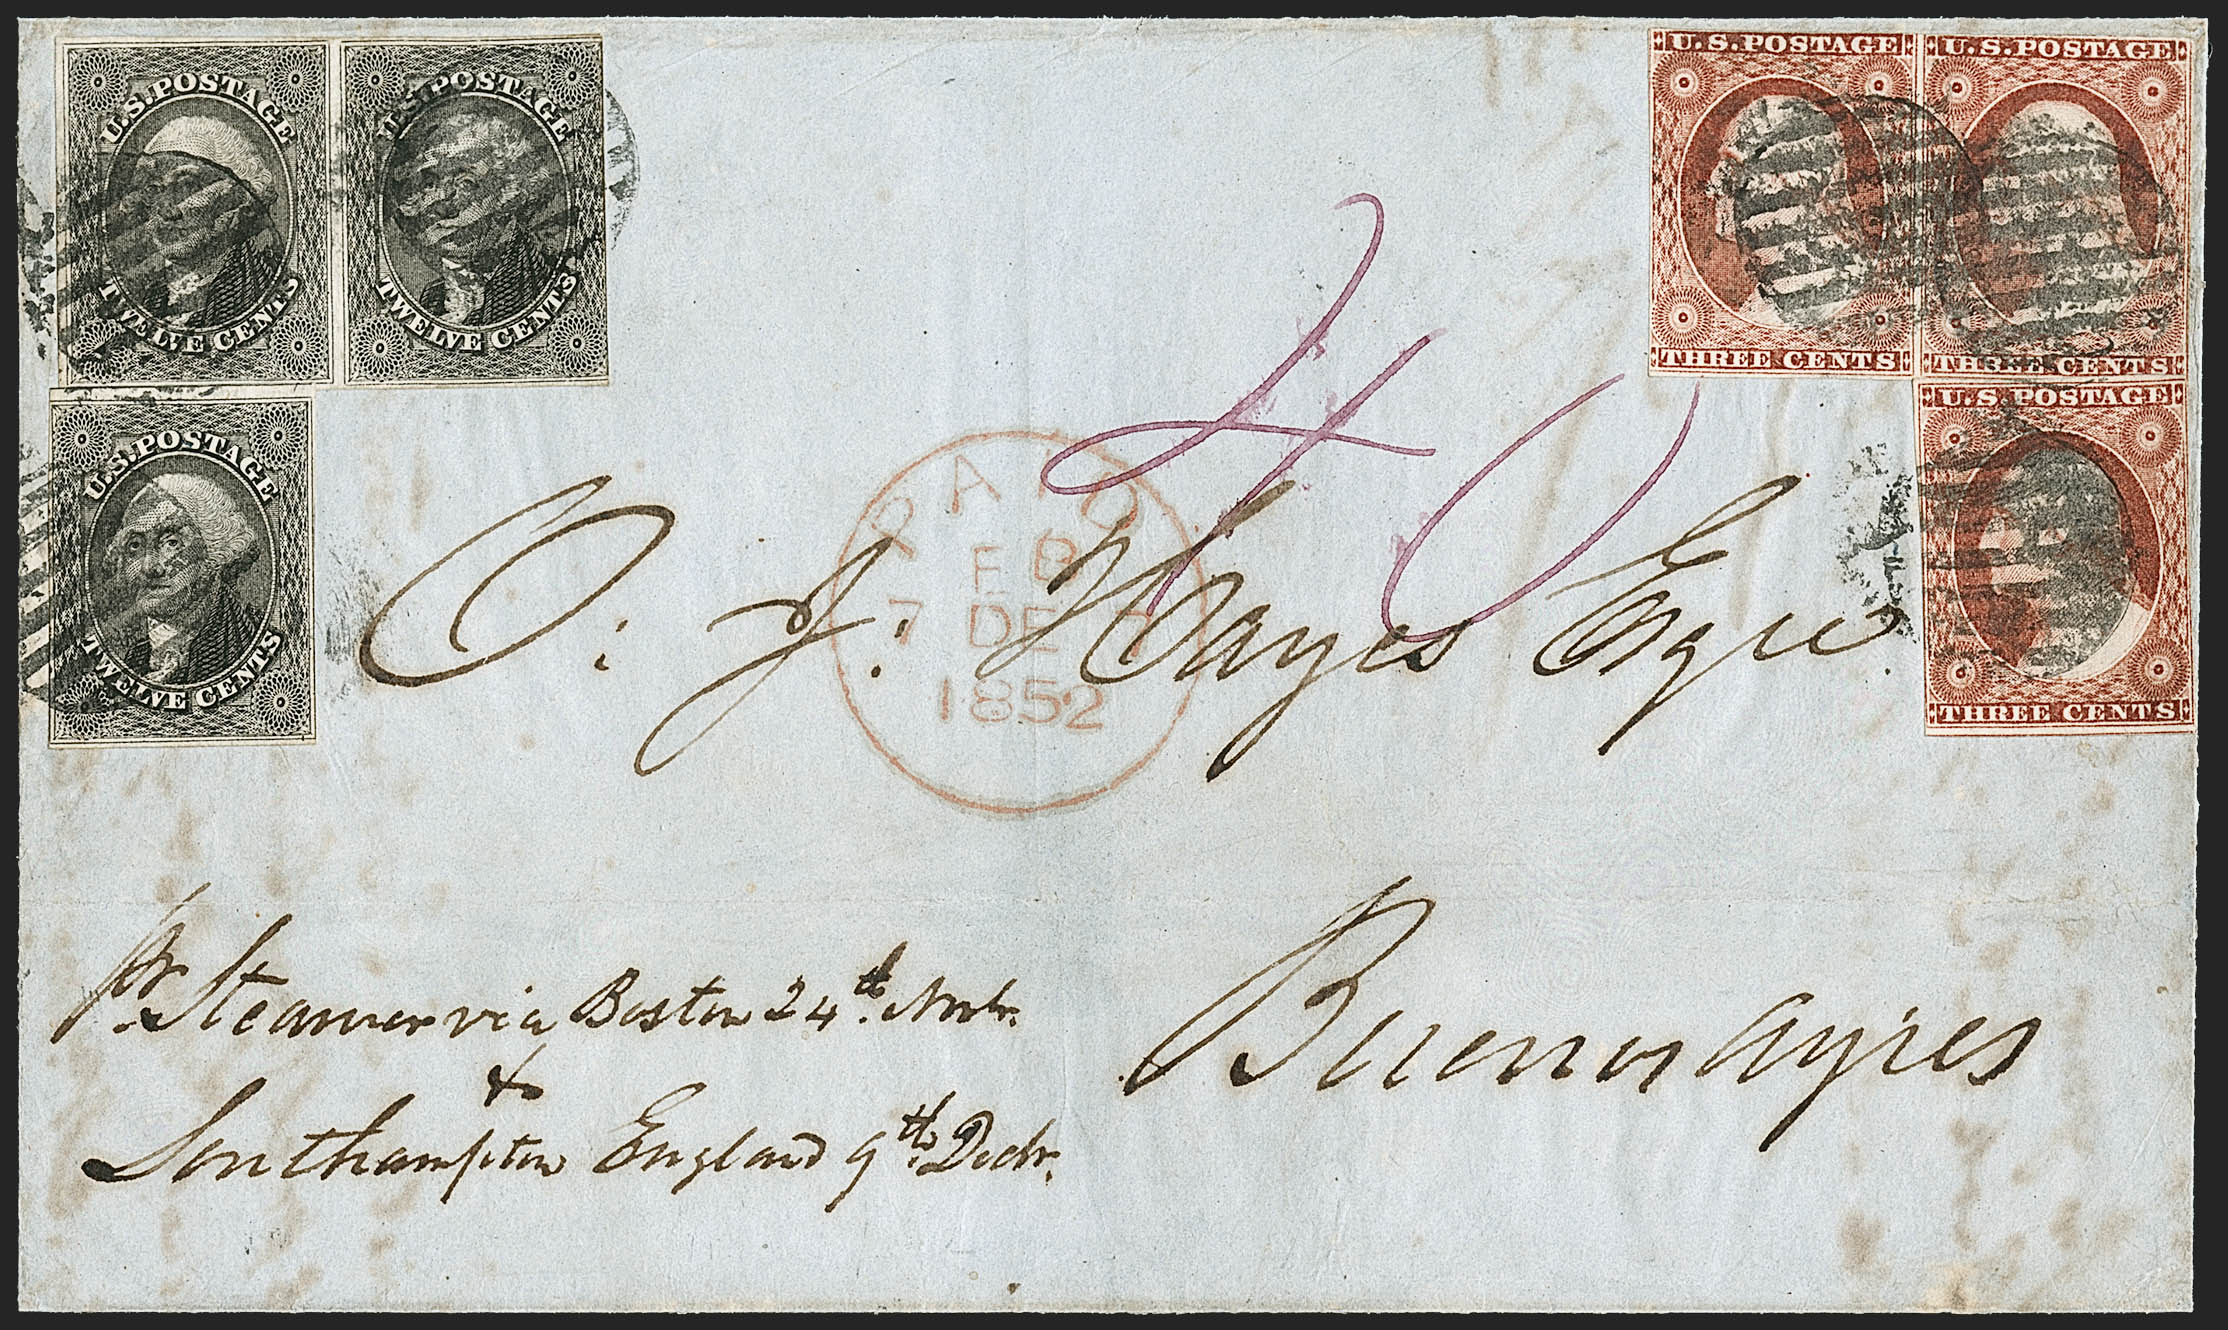 U.S. POSTAGE
TWELVE CENTS
U.S. POSTAGE
TWELVE CENTS
U.S. POSTAGE
TWELVE CENTS
U.S. POSTAGE
THREE CENTS
U.S. POSTAGE
THREE CENTS
U.S. POSTAGE
THREE CENTS
40
PAID
FB
7 DE
1852
O. J. Hayes Esqre
Pr. Steamer via Boston 24th. Novbr.
&
Southampton England 9th. Decbr.
Buenos Ayres